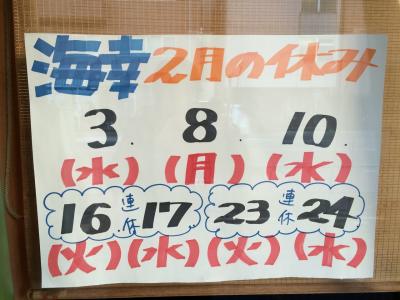 海幸 2月の休み
3. 8. 10.
(水) (月) (水)
16 連休 17 23 連休 24
(火) (水) (火) (水)